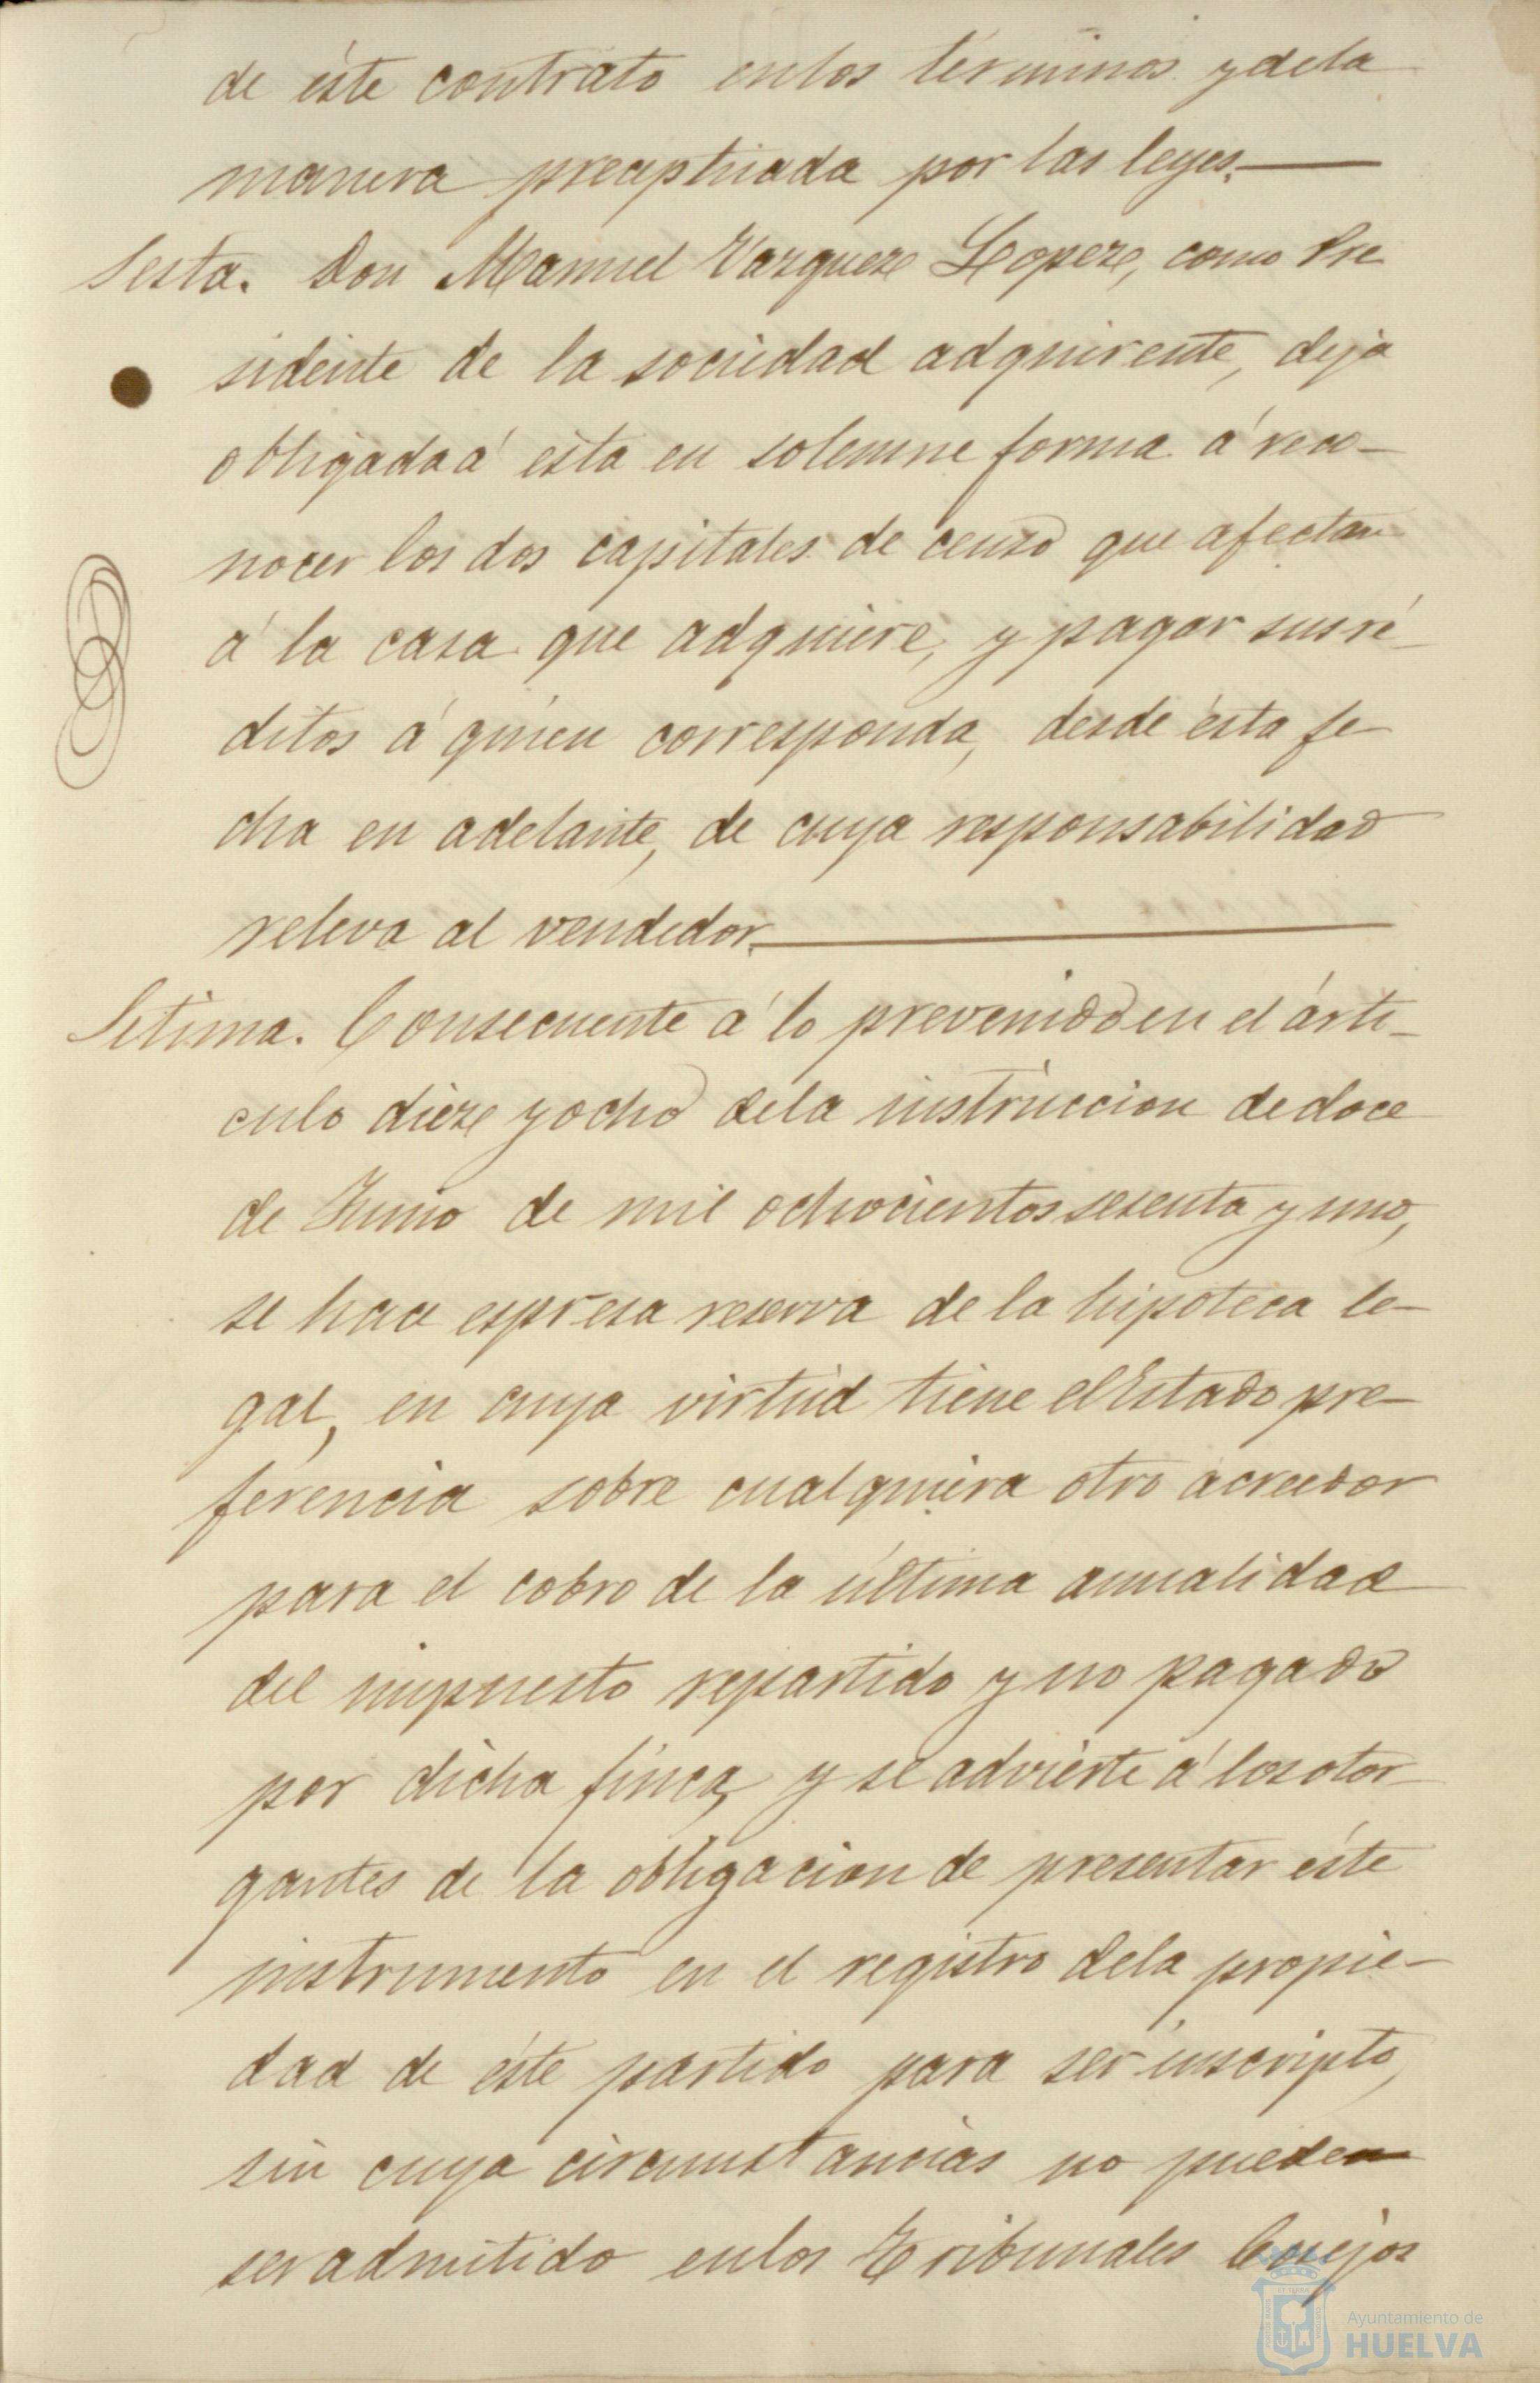 de éste contrato en los términos y de la
manera preceptuada por las leyes.
Sesta. Don Manuel Vazquez Lopez, como Pre
sidente de la sociedad adquirente, deja
obligada á esta en solemne forma á reco-
nocer los dos capitales de censo que afectan
á la casa que adquiere, y pagar sus ré-
ditos á quien corresponda, desde ésta fe-
cha en adelante, de cuya responsabilidad
releva al vendedor.
Setima. Consecuente á lo prevenido en el árti-
culo diez y ocho de la instruccion de doce
de Junio de mil ochocientos sesenta y uno,
se hace espresa reserva de la hipoteca le-
gal, en cuya virtud tiene el Estado pre-
ferencia sobre cualquiera otro acreedor
para el cobro de la última anualidad
del impuesto repartido y no pagado
por dicha finca, y se advierte á los otor-
gantes de la obligacion de presentar éste
instrumento en el registro de la propie-
dad de éste partido para ser inscripto,
sin cuya circunstancias no pueden
ser admitido en los Tribunales Cosejos
Ayuntamiento de
HUELVA